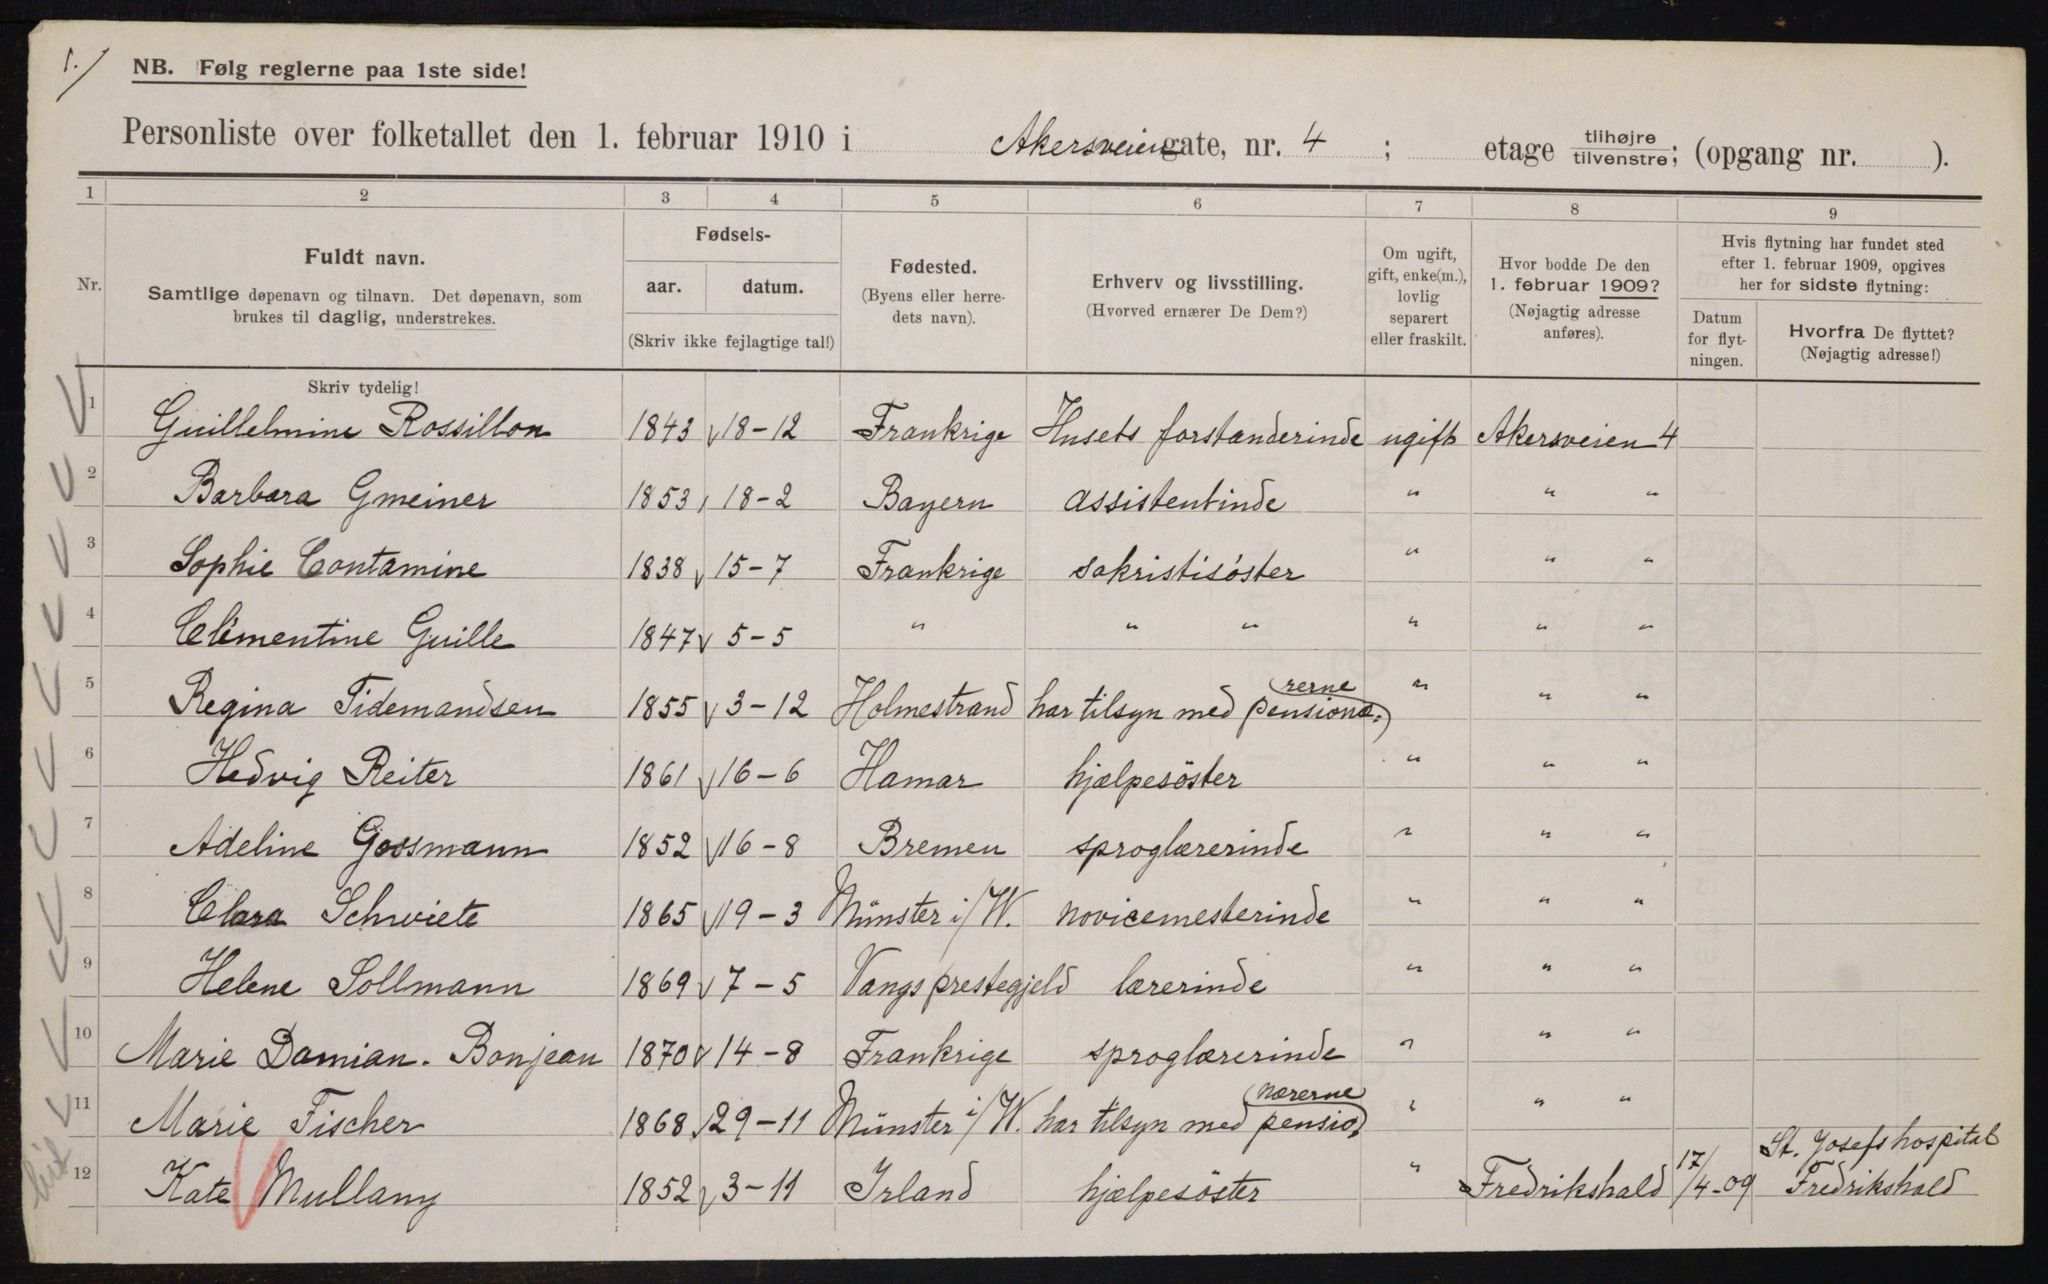 1./
NB. Følg reglerne paa 1ste side!
Personliste over folketallet den 1. februar 1910 i Akersveien gate, nr. 4 ; etage tilhøjre / tilvenstre; (opgang nr. ).
1 2 3 4 5 6 7 8 9
Nr.
Fuldt navn.
Samtlige døpenavn og tilnavn. Det døpenavn, som
brukes til daglig, understrekes.
Skriv tydelig!
Fødsels-
aar. datum.
(Skriv ikke fejlagtige tal!)
Fødested.
(Byens eller herre-
dets navn).
Erhverv og livsstilling.
(Hvorved ernærer De Dem?)
Om ugift,
gift, enke(m.),
lovlig
separert
eller fraskilt.
Hvor bodde De den
1. februar 1909?
(Nøjagtig adresse
anføres).
Hvis flytning har fundet sted
efter 1. februar 1909, opgives
her for sidste flytning:
Datum
for flyt-
ningen.
Hvorfra De flyttet?
(Nøjagtig adresse!)
1 Guillelmine Rossillon 1843 18-12 Frankrige Husets forstanderinde ugift Akersveien 4
2 Barbara Gmeiner 1853 18-2 Bayern assistentinde " " "
3 Sophie Contamine 1838 15-7 Frankrige sakristisöster " " "
4 Clémentine Guille 1847 5-5 " " " " " "
5 Regina Tidemandsen 1855 3-12 Holmestrand har tilsyn med pensionæ- rerne " " "
6 Hedvig Reiter 1861 16-6 Hamar hjælpesöster " " "
7 Adeline Gossmann 1852 16-8 Bremen sproglærerinde " " "
8 Clara Schwiete 1865 19-3 Münster i/W. novicemesterinde " " "
9 Helene Sollmann 1869 7-5 Vangs prestegjeld lærerinde " " "
10 Marie Damian-Bonjean 1870 14-8 Frankrige sproglærerinde " " "
11 Marie Fischer 1868 29-11 Münster i/W. har tilsyn med pensio- nærerne " " "
12 Kate Mullany 1852 3-11 Irland hjælpesöster " Fredrikshald 17/4-09 St. Josefs hospital Fredrikshald